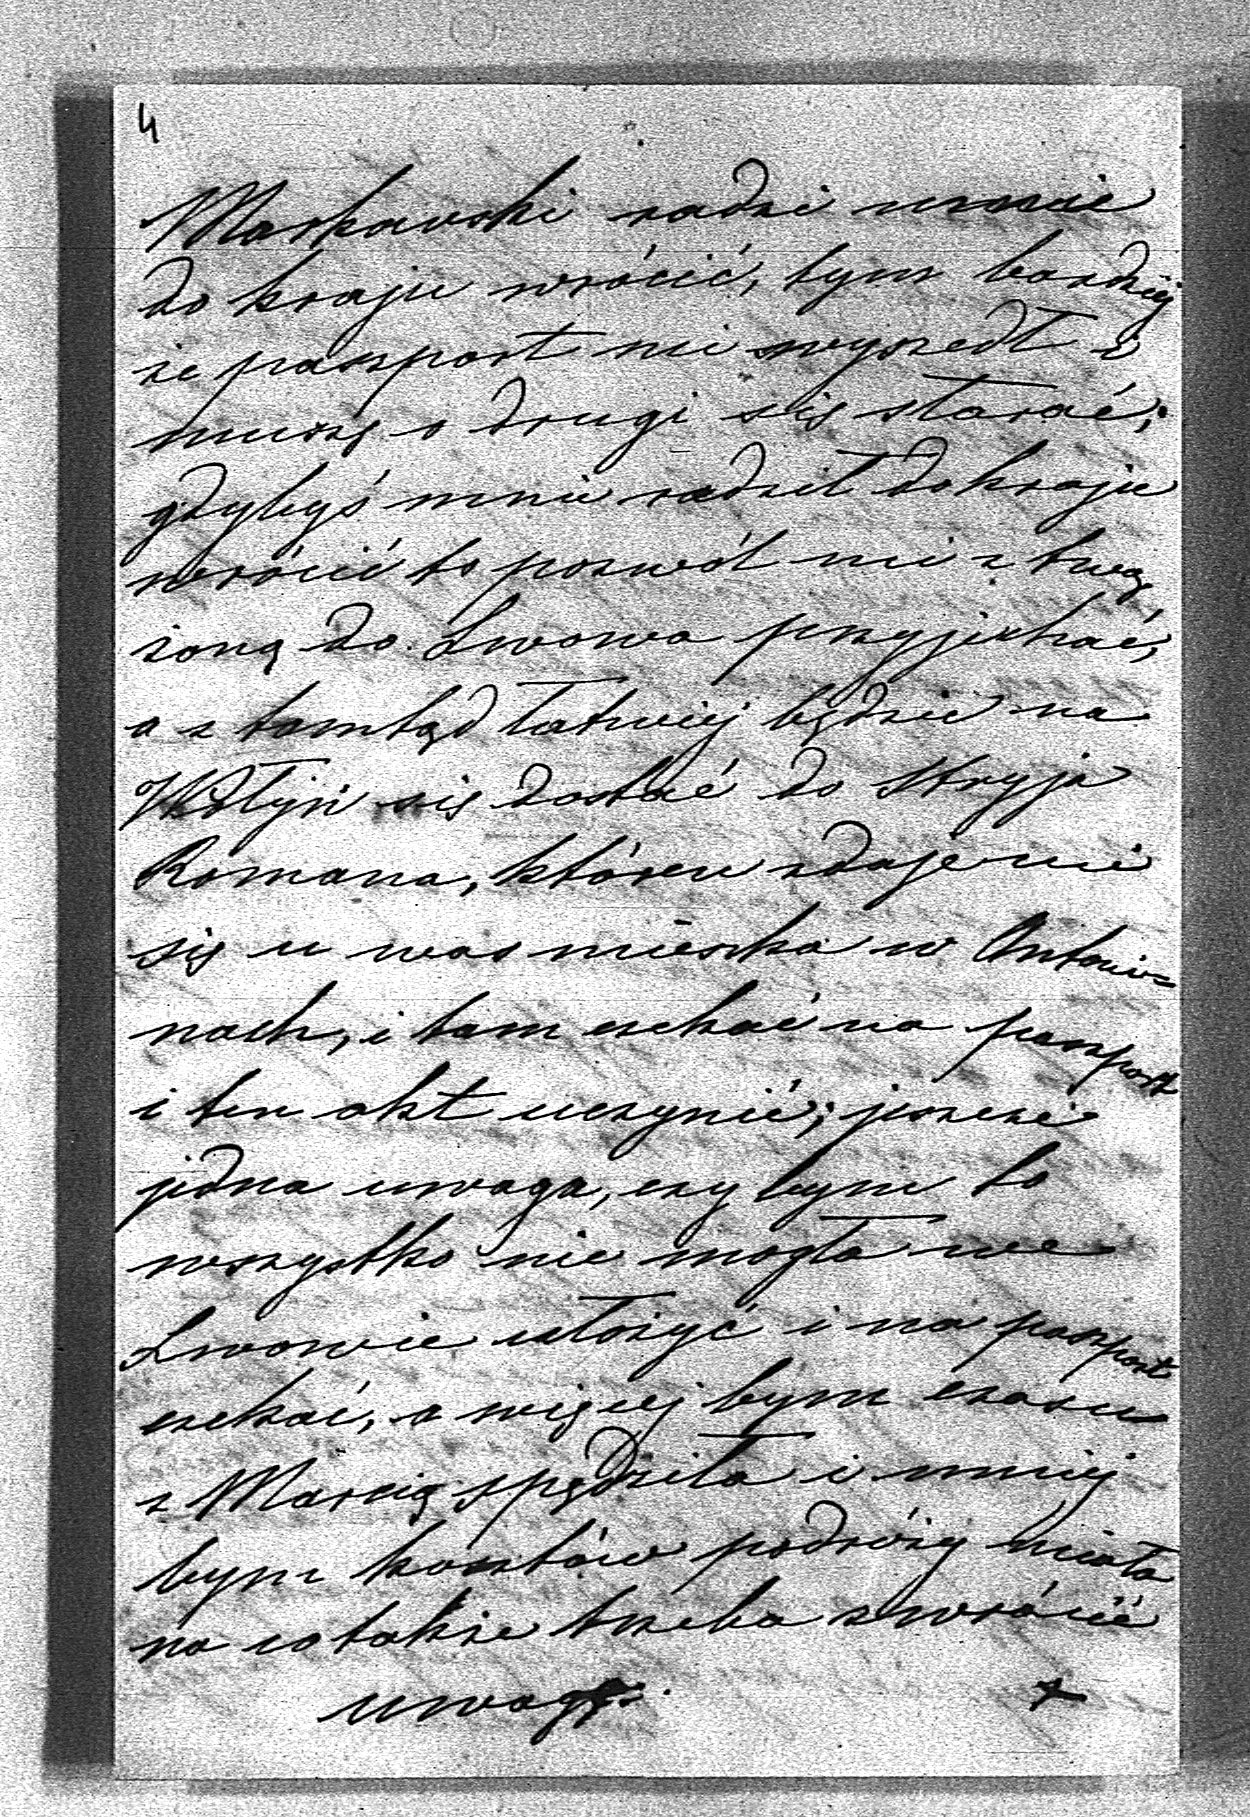 4
Markowski radzi mnie
do kraju wrócić, tym bardziej
że paszport mi wyszedł i
muszę o drugi się starać;
gdybyś mnie radził do kraju
wrócić to pozwól mi z twą
żoną do Lwowa przyjechać,
a z tamtąd łatwiej będzie na
Wołyń się dostać do Stryja
Romana, któren zdaje mi
się u was mieszka w Antoni=
nach, i tam czekać na paszport
i ten akt uczynić; jeszcze
jedna uwaga, czy bym to
wszystko nie mogła we
Lwowie ułożyć i na paszport
czekać, a więcej bym czasu
z Marcią spędziła i mniej
bym kosztów podróży miała
na co także trzeba zwrócić
uwagę.